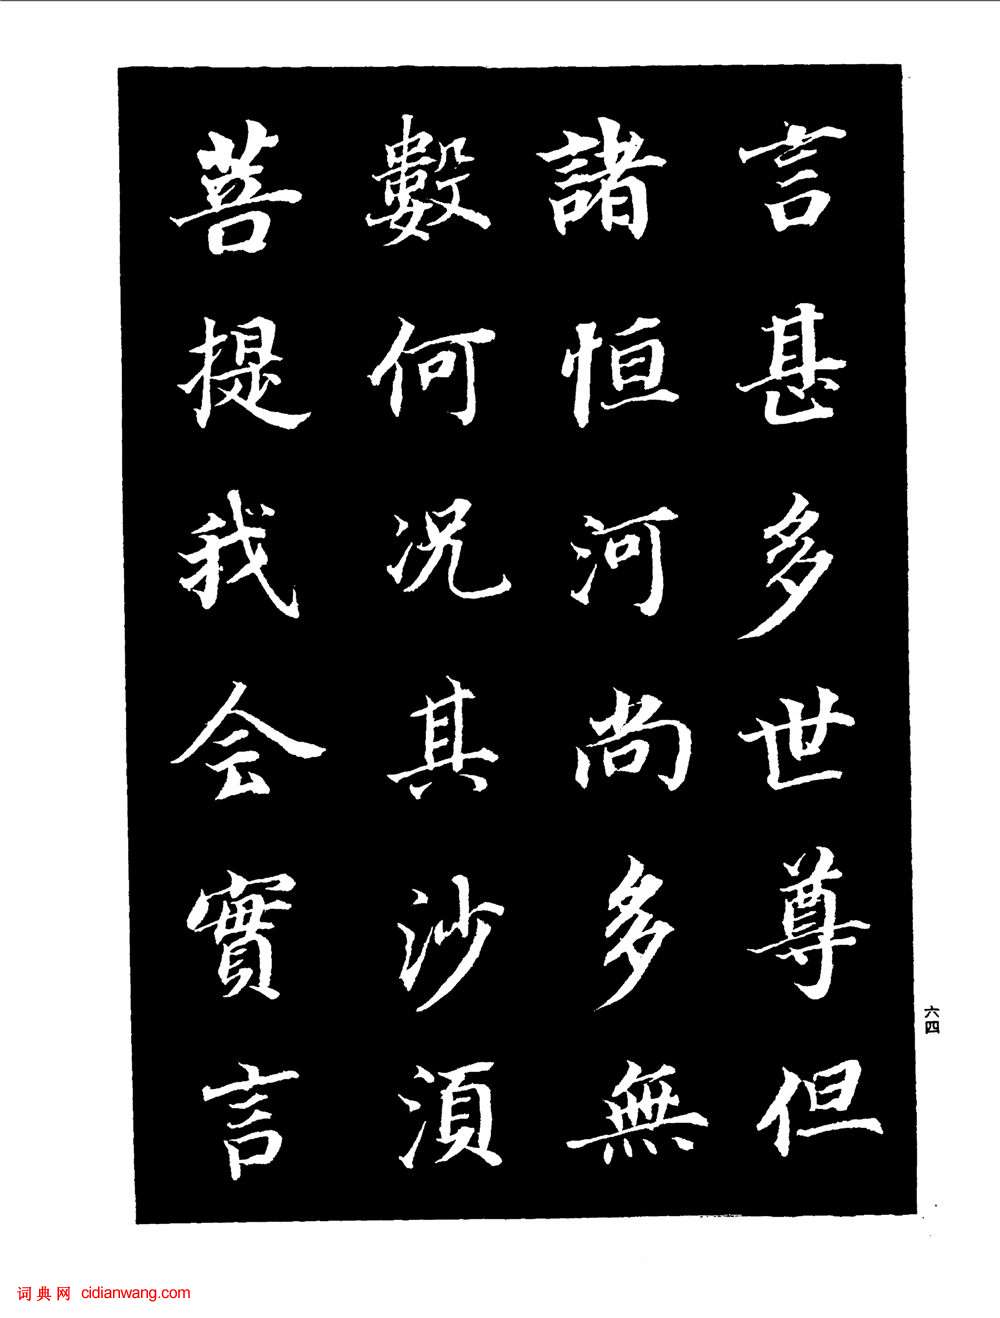 言甚多世尊但
諸恒河尚多無
數何况其沙湏
菩提我今實言
六四
词典网 cidianwang.com